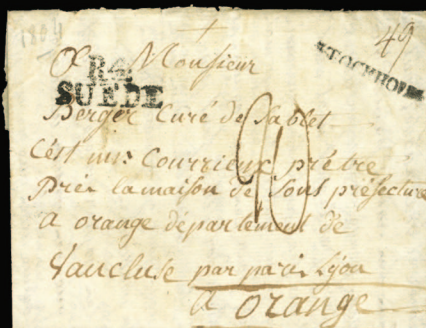 1804
49
A Monsieur
R4
SUÈDE
STOCKHOLM
Berger Curé de Sablet
C'est mr. Courvieux prêtre
Près la maison de Sous préfecture
a orange département de
Vaucluse par paris Lyon
a orange